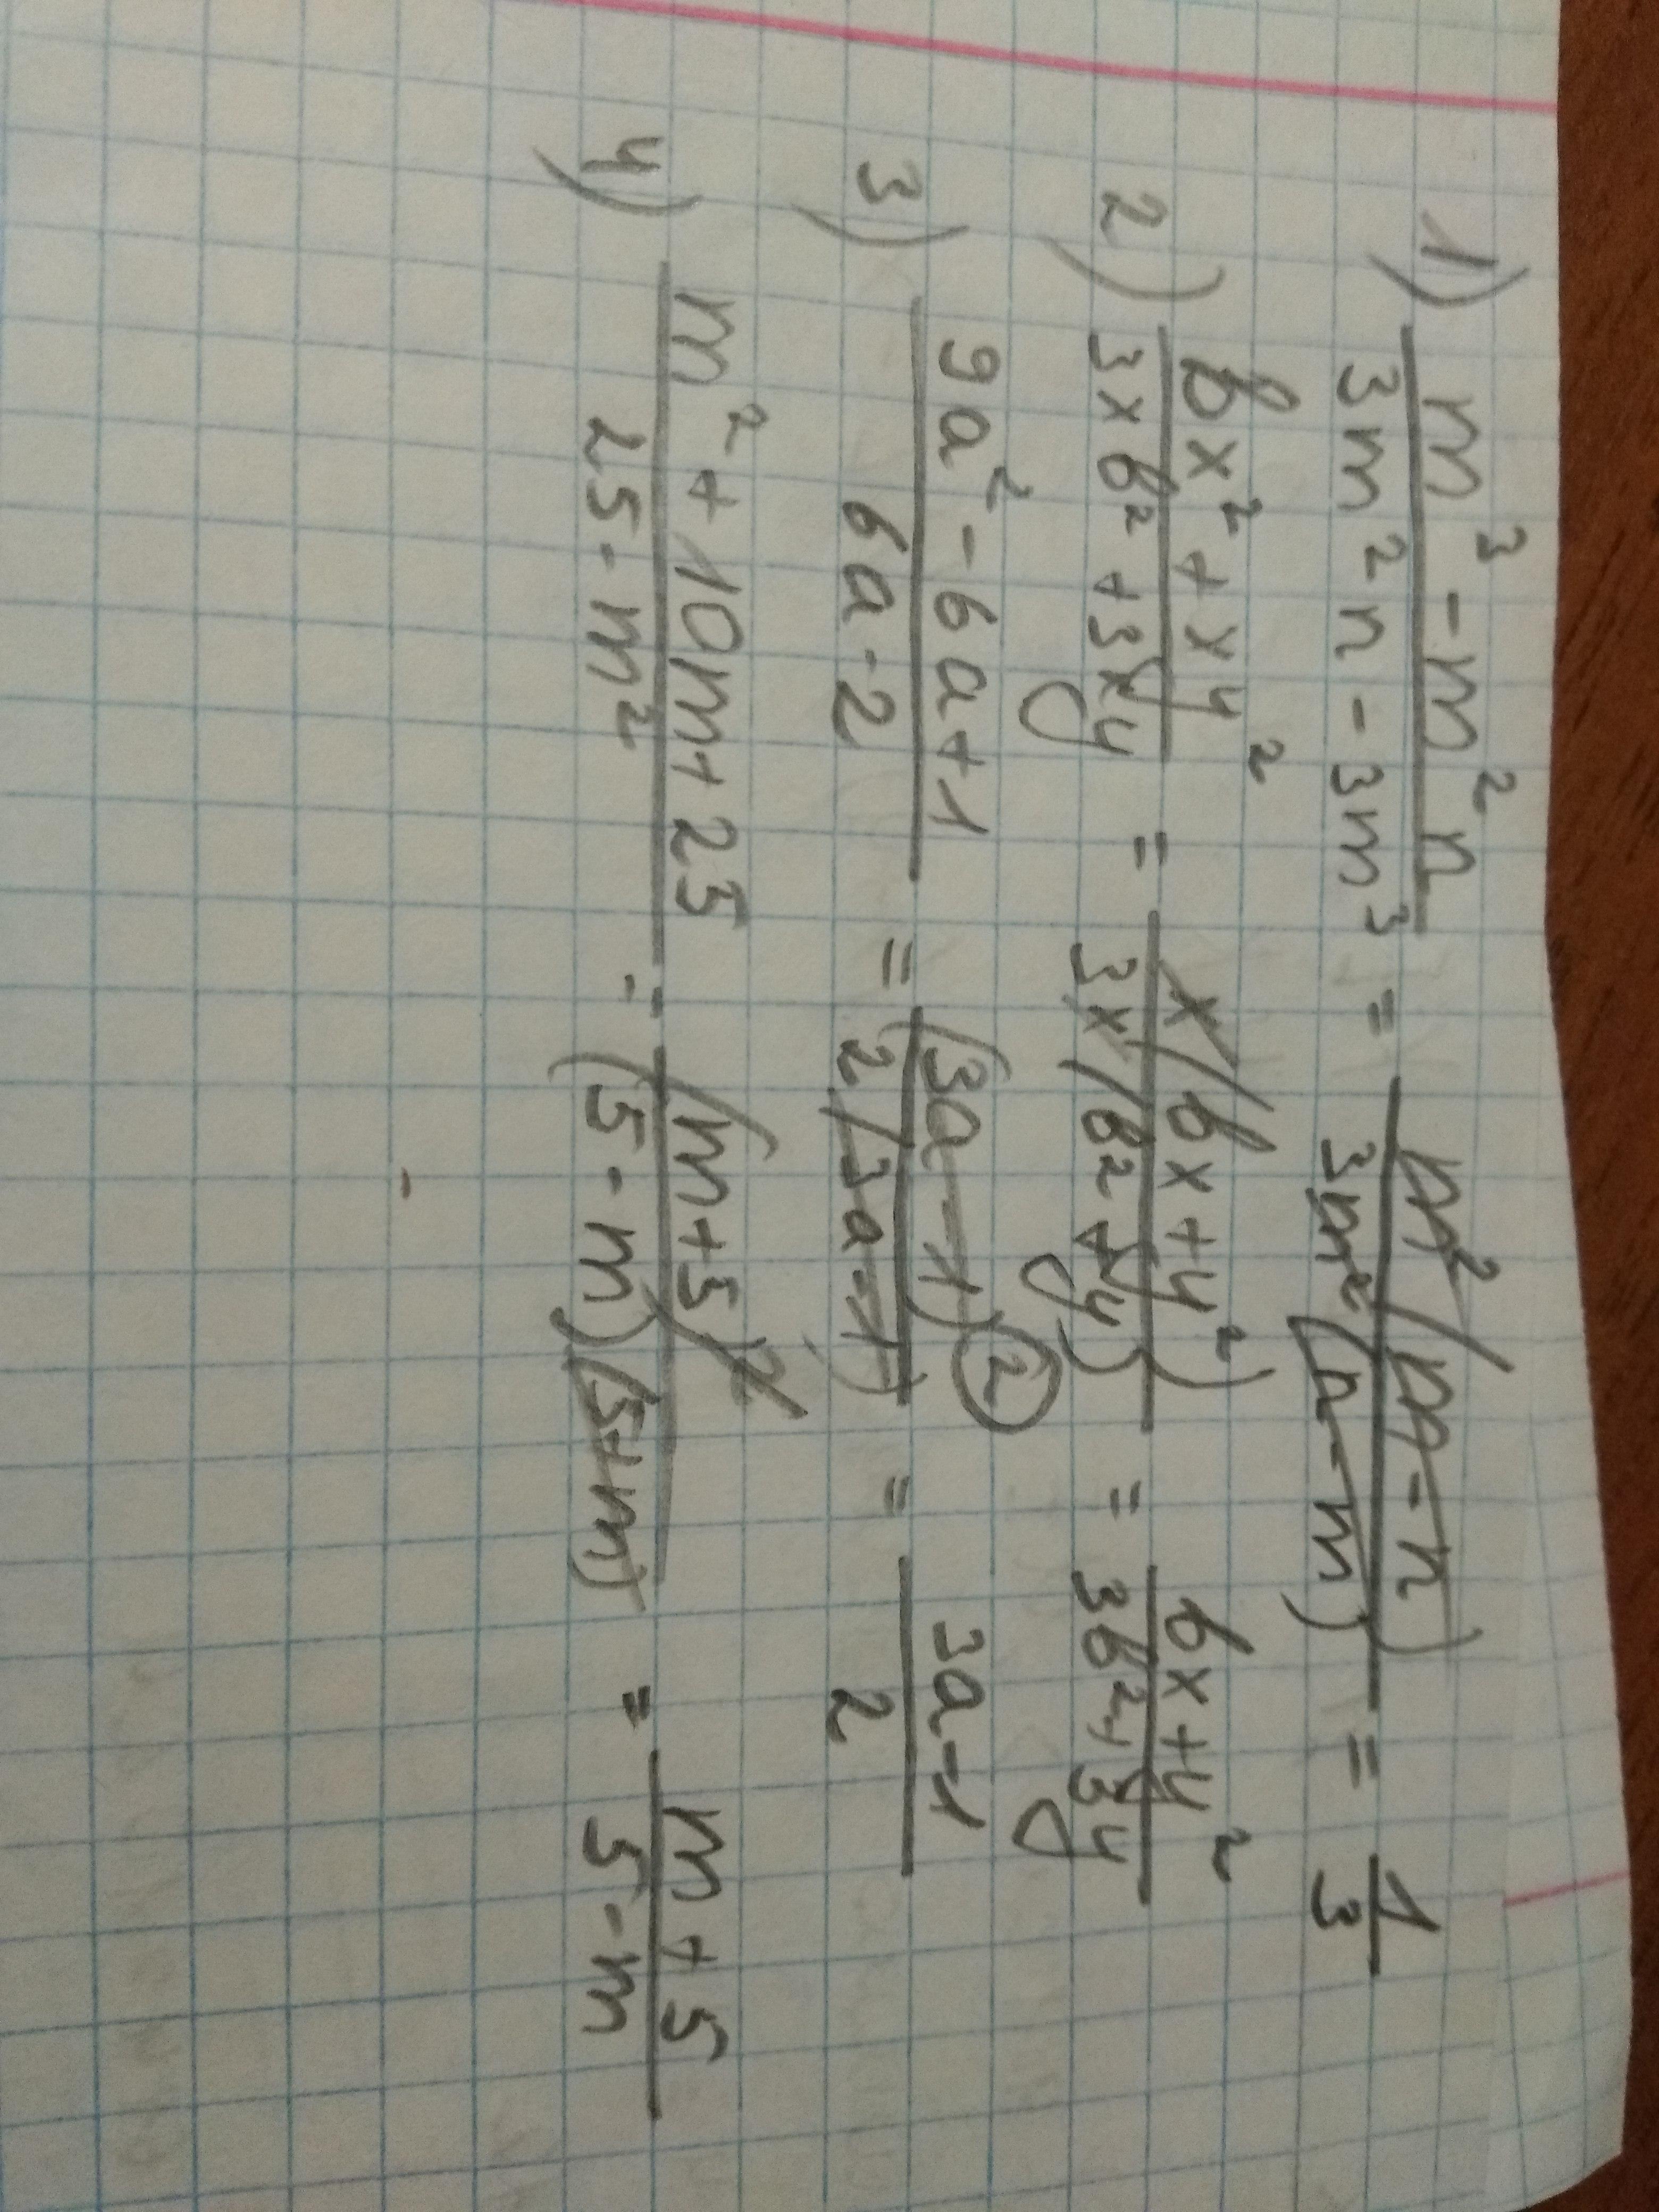 1) (m³ - m²n)/(3m²n - 3m³) = (m²(m - n))/(3m²(n - m)) = 1/3
2) (вx² + xy²)/(3xв² + 3xy) = (x(вx + y²))/(3x(в² + y)) = (вx + y²)/(3в² + 3y)
3) (9a² - 6a + 1)/(6a - 2) = (3a - 1)²/(2(3a - 1)) = (3a - 1)/2
4) (m² + 10m + 25)/(25 - m²) = (m + 5)²/((5 - m)(5 + m)) = (m + 5)/(5 - m)